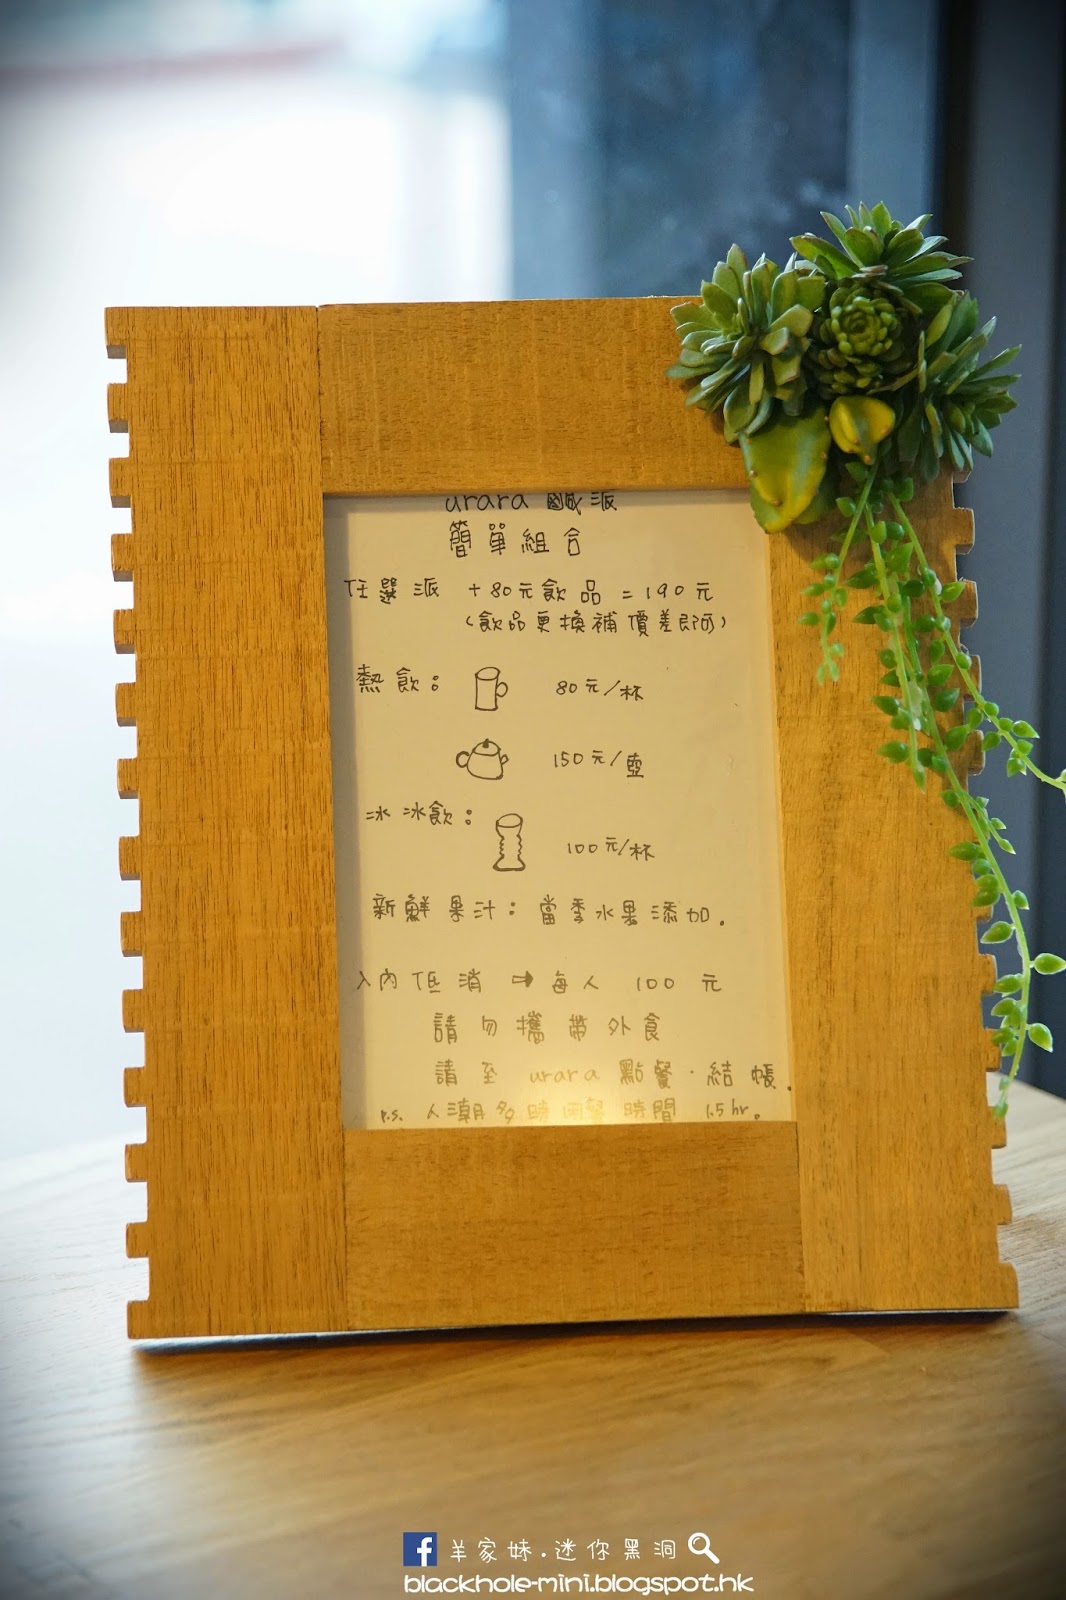 urara 鹹派
簡單組合
任選派 +80元飲品=190元
(飲品更換補價差即可)
熱飲: 80元/杯
150元/壺
冰冰飲: 100元/杯
新鮮果汁:當季水果添加.
入內低消 → 每人 100 元
請勿攜帶外食
請至 urara 點餐.結帳.
P.S. 人潮多時用餐時間 1.5hr.
f 羊家妹.迷你黑洞
blackhole-mini.blogspot.hk